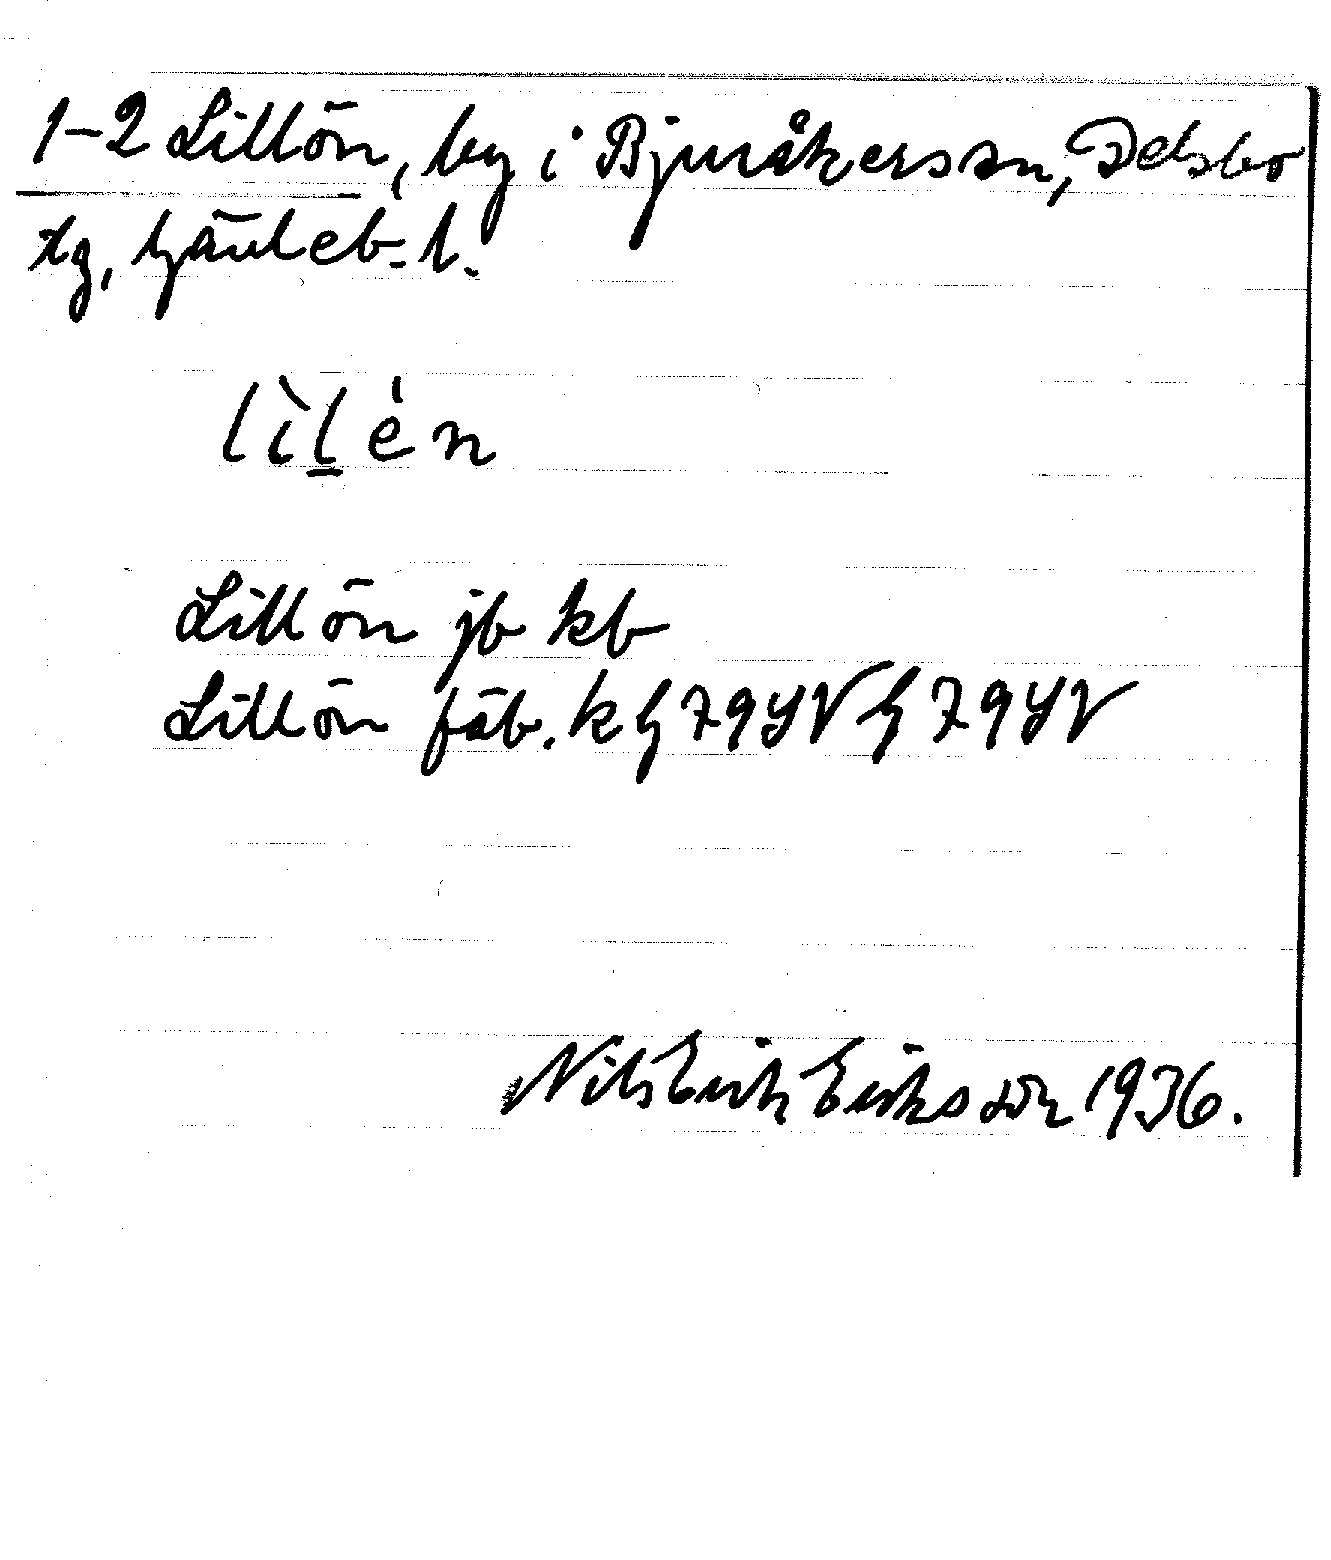 1-2 Lillön, by i Bjuråkers sn, Delsbo
tg, Gävleb. l.
lìlén
Lillön jb kb
Lillön fäb. k G 79 YV G 79 YV
Nils Erik Eriksson 1936.